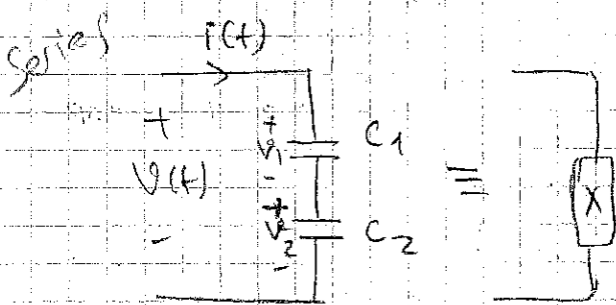 series
i(t)
+
v(t)
-
+
v1
-
C1
+
v2
-
C2
≡
X